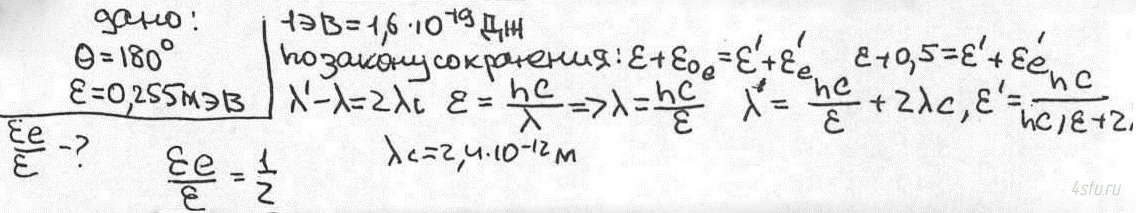 дано:
θ=180°
ε=0,255мэВ
εe/ε -?
1эВ=1,6·10⁻¹⁹Дж
по закону сохранения: ε+ε₀e=ε'+ε'e ε+0,5=ε'+ε'e
λ'-λ=2λc ε=hc/λ=>λ=hc/ε λ'=hc/ε+2λc, ε'=hc/hc/ε+2
λc=2,4·10⁻¹²м
εe/ε=1/2
4stu.ru